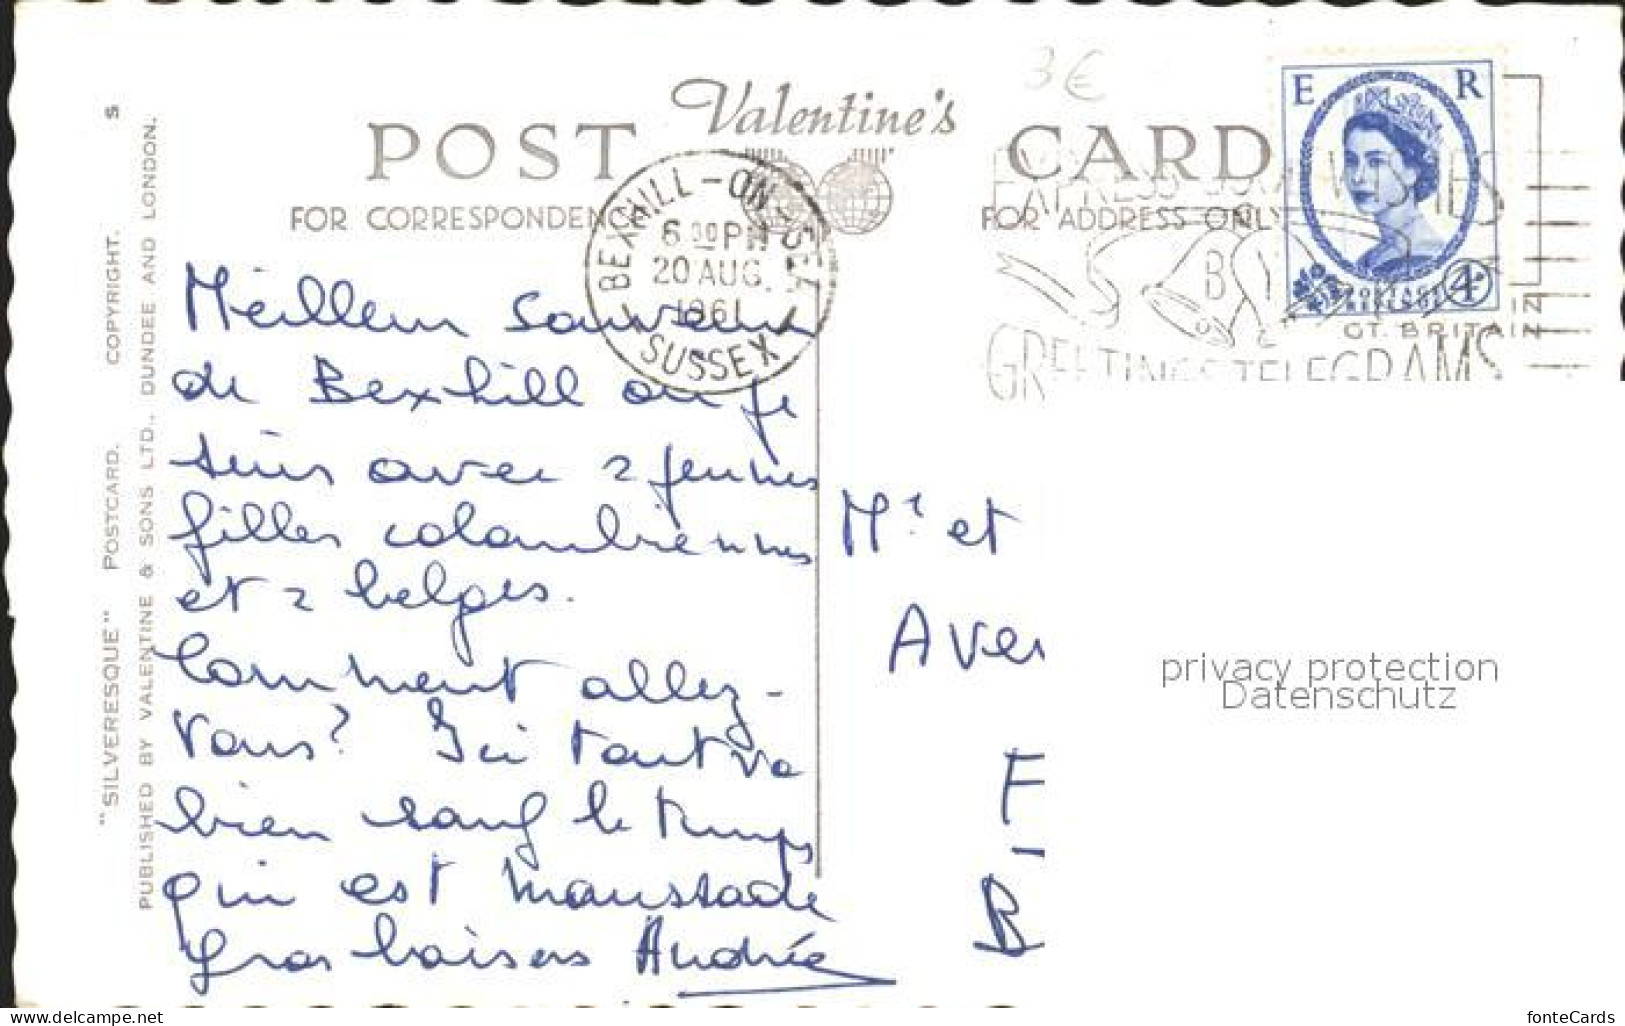 3€
Valentine's
POST CARD
FOR CORRESPONDENCE
FOR ADDRESS ONLY
BEXHILL-ON-SEA
6 00 PM
20 AUG.
1961
SUSSEX
E R
POSTAGE
REVENUE
4D
EXPRESS YOUR WISHES
BY
GREETINGS TELEGRAMS
GT. BRITAIN
"SILVERESQUE" POSTCARD. COPYRIGHT. S
PUBLISHED BY VALENTINE & SONS LTD., DUNDEE AND LONDON.
Meilleur Souvenir
de Bexhill où je
suis avec 2 jeunes
filles colombiennes
et 2 belges.
Comment allez-
vous? Ici tout va
bien sauf le temps
qui est maussade
Gros baisers Andrée
Mr et
Ave
F
B
privacy protection
Datenschutz
delcampe.net
fonteCards